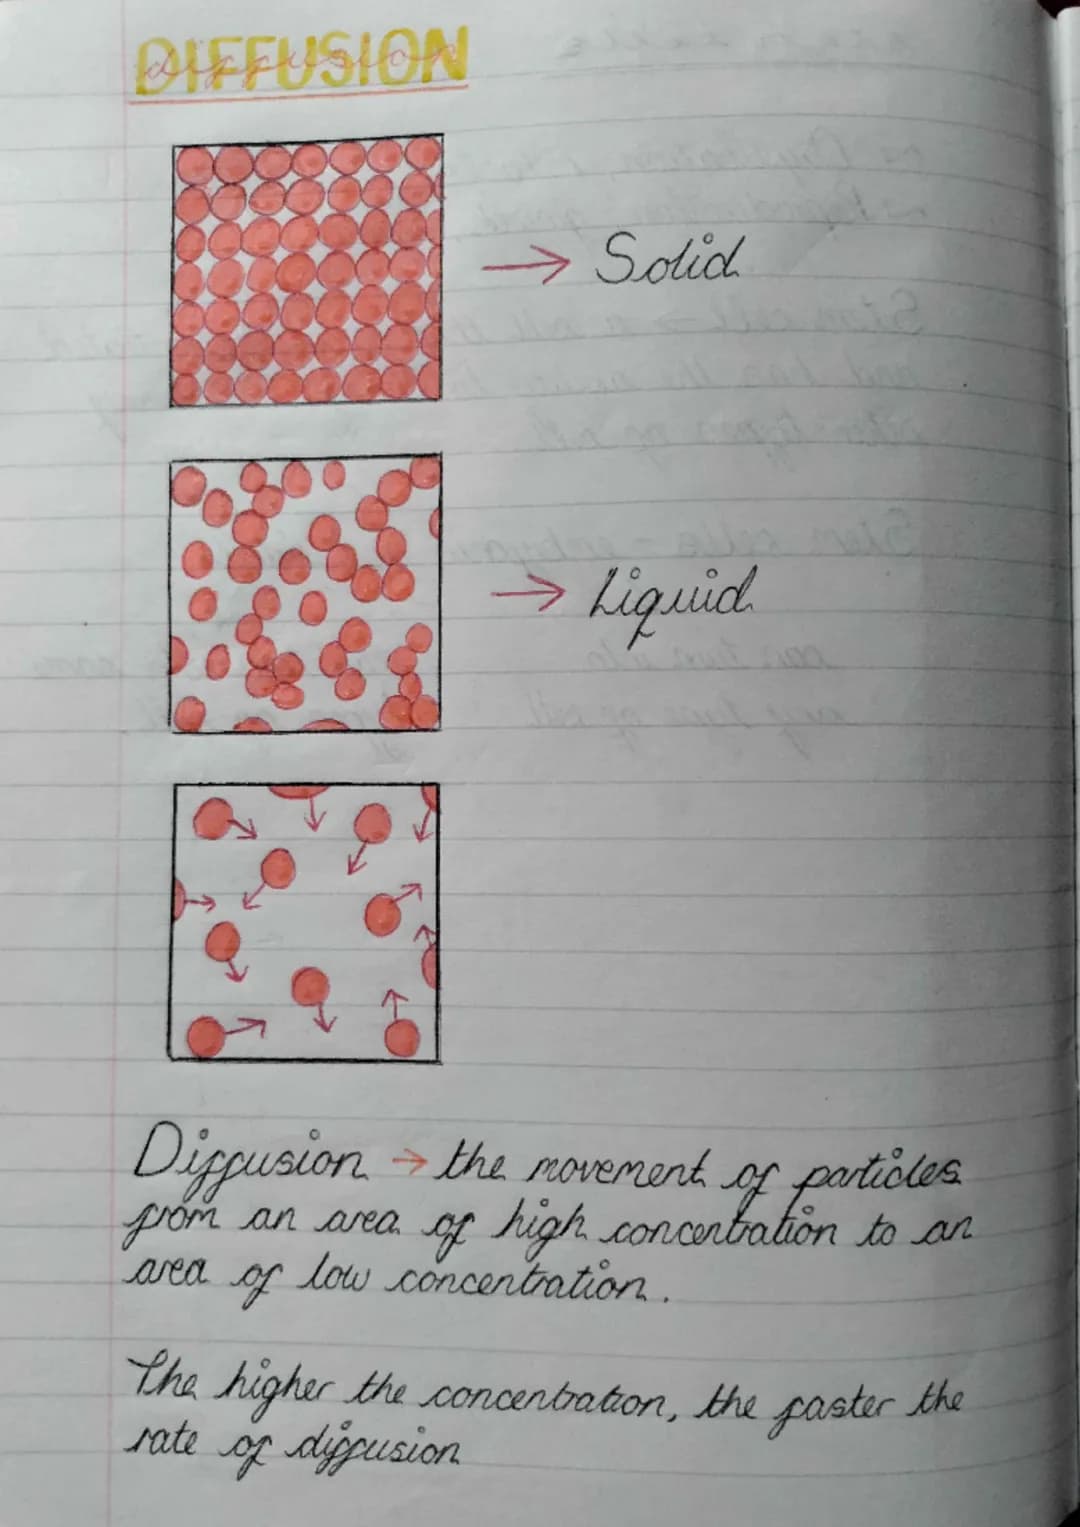 DIFFUSION
diffusion
→ Solid
→ Liquid
Diffusion → the movement of particles
from an area of high concentration to an
area of low concentration.
The higher the concentration, the faster the
rate of diffusion